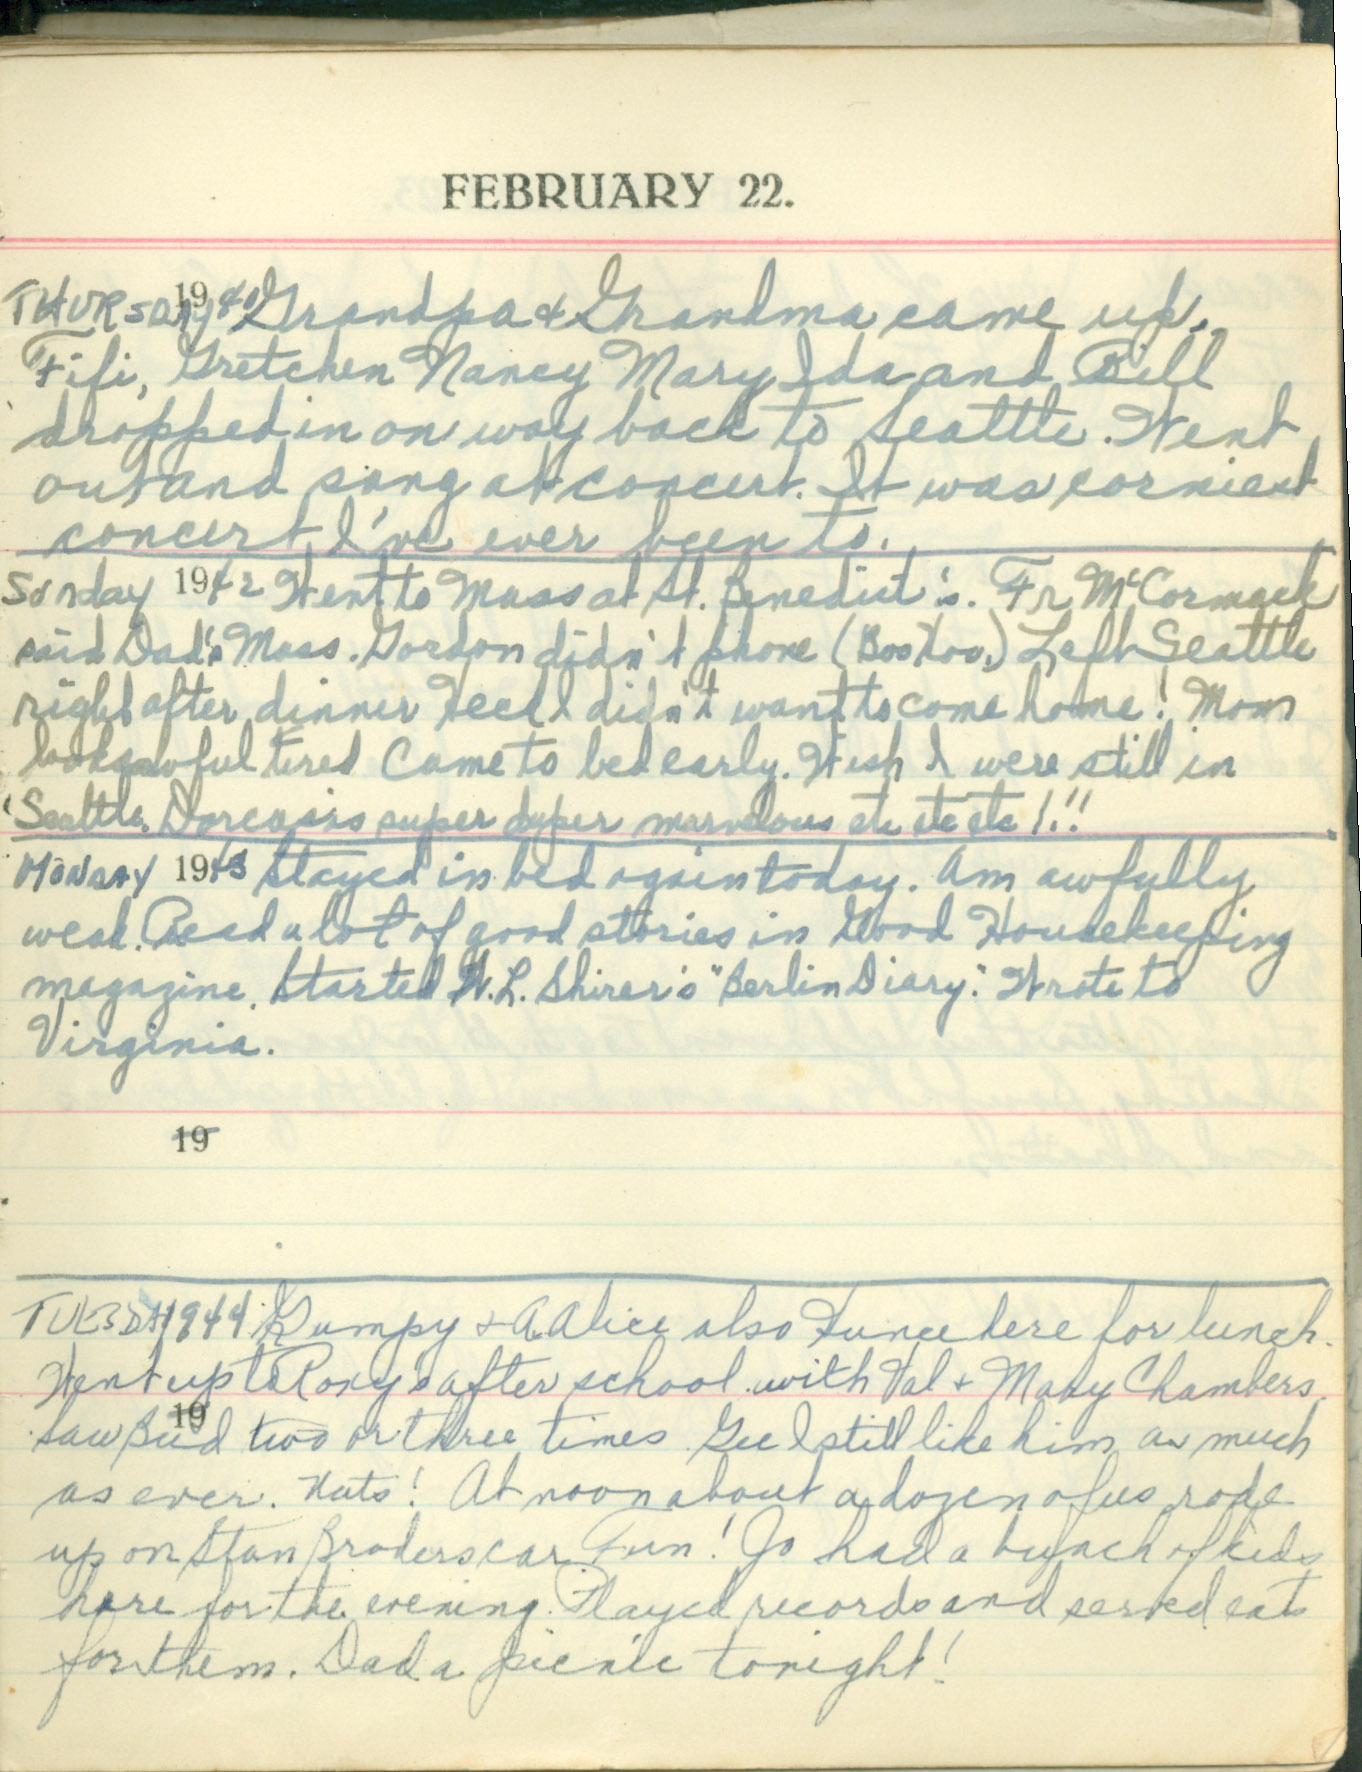 FEBRUARY 22.
THURSDAY 1940 Grandpa & Grandma came up.
Fifi, Gretchen Nancy Mary Ida and Bill
dropped in on way back to Seattle. Went
out and sang at concert. It was corniest
concert I've ever been to.
Sunday 1942 Went to Mass at St. Benedict's. Fr McCormack
said Dad's Mass. Gordon didn't phone (Boo hoo,) Left Seattle
right after dinner Heck I didn't want to come home! Mom
looks awful tired Came to bed early. Wish I were still in
Seattle. super duper marvelous etc etc etc!!!
Monday 1943 Stayed in bed again today. Am awfully
weak. Read a lot of good stories in Good Housekeeping
magazine. Started W. L. Shirer's "Berlin Diary." Wrote to
Virginia.
19
TUESDAY 1944 Gumpy & A. Alice also here for lunch.
Went up to Roxy's after school with Val & Mary Chambers.
19
Saw Bud two or three times Gee I still like him as much
as ever. Nuts! At noon about a dozen of us rode
up on Stan Broders car Fun! Jo had a bunch of kids
here for the evening. Played records and served eats
for them. Dad a picnic tonight!